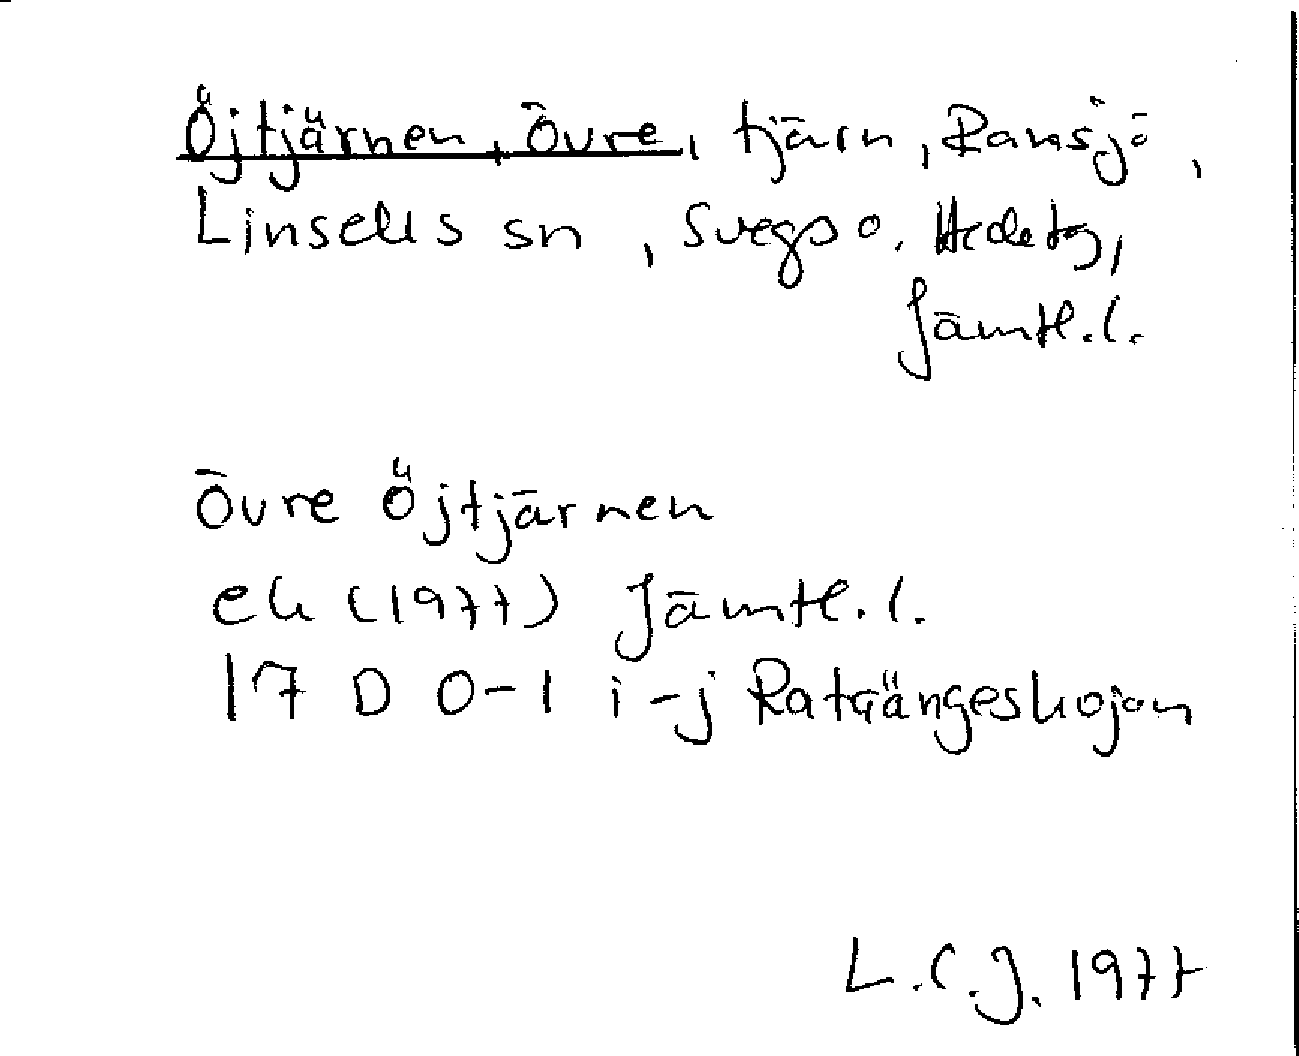 Öjtjärnen, Övre, tjärn, Ransjö,
Linsells sn, Svegs o. Hede tg,
Jämtl.l.
Övre Öjtjärnen
ek (1977) Jämtl.l.
17 D 0-1 i-j Ratgängeskojan
L.C.J. 1977